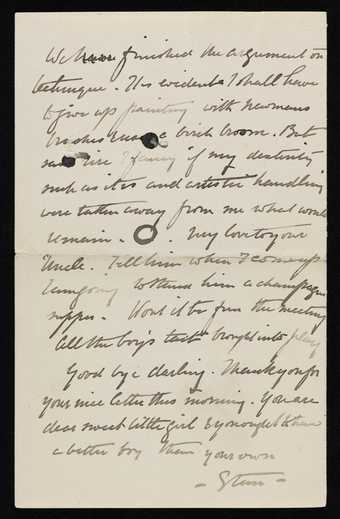 We have finished the argument on
technique. It is evident I shall have
to give up painting with Newmans
brushes & use a birch broom. But
I fancy if my dexterity
such as it is and artistic handling
were taken away from me what would
remain. O. My love to your
Uncle. Tell him when I come up
I am going to stand him a champagne
supper. Wont it be fun the meeting
All the boy's tact brought into play
Good bye darling. Thank you for
your nice letter this morning. You are
dear sweet little girl & you ought to have
a better boy than your own
- Stan -